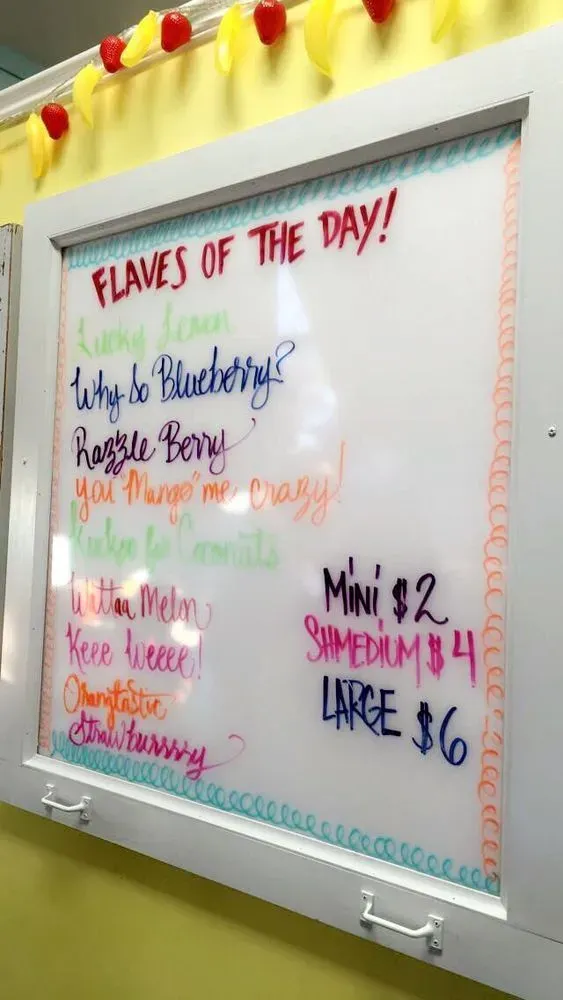 FLAVES OF THE DAY!
Lucky Lemon
Why So Blueberry?
Razzle Berry
you "Mango" me crazy!
Kuckoo for Coconuts
Wattaa Melon
Keee Weeee!
Orangtastic
Strawburrrry
MiNi $2
SHMEDIUM $4
LARGE $6